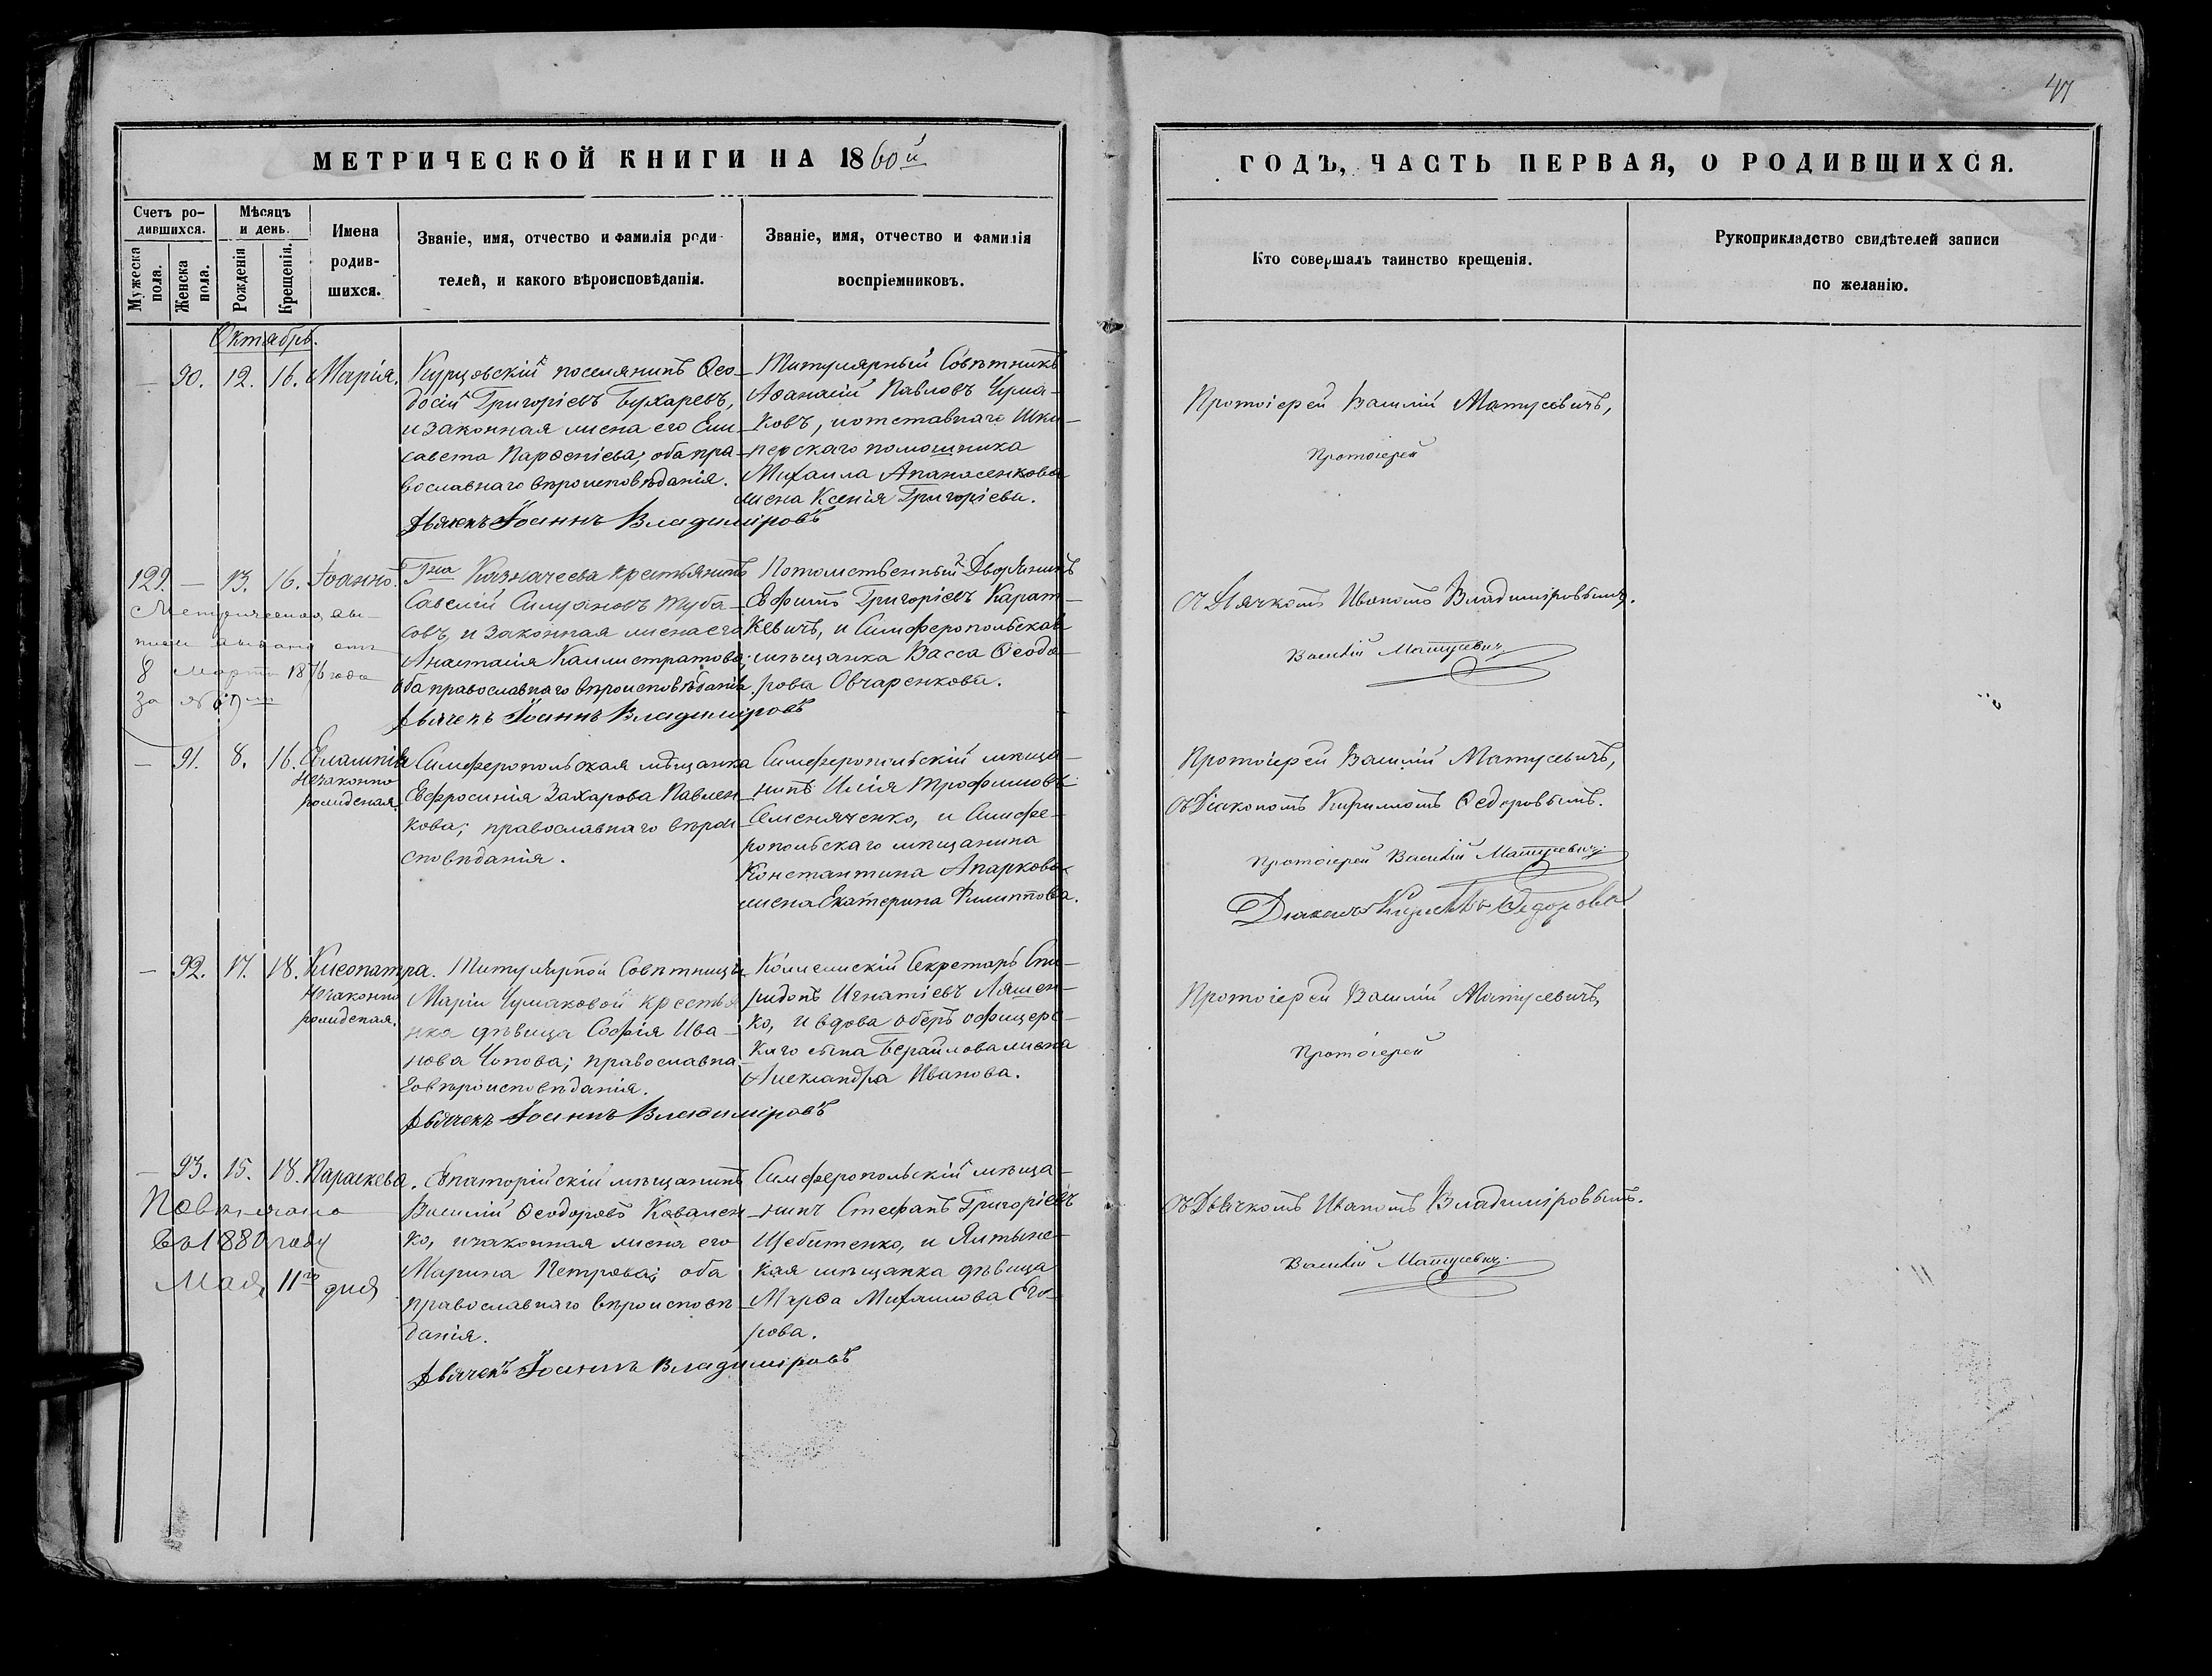 47
МЕТРИЧЕСКОЙ КНИГИ НА 1860й
ГОДЪ, ЧАСТЬ ПЕРВАЯ, О РОДИВШИХСЯ.
Счетъ ро-
дившихся.
Мужеска пола.
Женска пола.
Мѣсяцъ
и день.
Рожденія
Крещенія.
Имена
родив-
шихся.
Званіе, имя, отчество и фамилія роди-
телей, и какого вѣроисповѣданія.
Званіе, имя, отчество и фамилія
воспріемниковъ.
Кто совершалъ таинство крещенія.
Рукоприкладство свидѣтелей записи
по желанію.
Октябрь.
— 90. 12. 16. Марія.
Курцовскій поселянинъ Ѳео-
досій Григорьевъ Бухаревъ,
и законная жена его Ели-
савета Парѳеніева; оба пра-
вославнаго вѣроисповѣданія.
Дьячекъ Іоаннъ Владиміровъ
Титулярный Совѣтникъ
Аѳанасій Павловъ Чума-
ковъ, и отставнаго Шки-
перскаго помощника
Михаила Апанасенкова
жена Ксенія Григорьева.
Протоіерей Василій Матусевичъ,
Протоіерей
129. — 13. 16. Іоаннъ.
Метрическая вы-
пись выдана отъ
8 Марта 1876 года
за №
Гна Казначеева крестьянинъ
Савелій Силуановъ Туба-
совъ, и законная жена его
Анастасія Каллистратова;
оба православнаго вѣроисповѣданія.
Дьячекъ Іоаннъ Владиміровъ
Потомственный Дворянинъ
Евфимъ Григорьевъ Карат-
кевичъ, и Симферопольская
мѣщанка Васса Ѳеодо-
рова Овчаренкова.
съ Дьячкомъ Иваномъ Владиміровымъ.
Василій Матусевичъ
— 91. 8. 16. Евлампія
Незаконно
рожденая.
Симферопольская мѣщанка
Евфросинія Захарова Павлен-
кова; православнаго вѣрои-
сповѣданія.
Симферопольскій мѣща-
нинъ Илія Трофимовъ
Семеняченко, и Симфе-
ропольскаго мѣщанина
Константина Апаркова
жена Екатерина Филиппова.
Протоіерей Василій Матусевичъ,
съ Діакономъ Кирилломъ Ѳедоровымъ.
Протоіерей Василій Матусевичъ
Діаконъ Кириллъ Ѳедоровъ
— 92. 17. 18. Клеопатра.
Незаконно
рожденая.
Титулярной Совѣтницы
Маріи Чумаковой крестья-
нка дѣвица Софія Ива-
нова Чопова; православна-
го вѣроисповѣданія.
Дьячекъ Іоаннъ Владиміровъ
Коллежскій Секретарь Спи-
ридонъ Игнатіевъ Ляшен-
ко, и вдова оберъ офицерс-
каго сына Берайлова жена
Александра Иванова.
Протоіерей Василій Матусевичъ,
Протоіерей
— 93. 15. 18. Параскева.
въ 1880 году
Мая 11го дня
Евпаторійскій мѣщанинъ
Василій Ѳеодоровъ Кавален-
ко, и законная жена его
Марина Петрова; оба
православнаго вѣроисповѣ-
данія.
Дьячекъ Іоаннъ Владиміровъ
Симферопольскій мѣща-
нинъ Стефанъ Григорьевъ
Щебитенко, и Ялтынс-
кая мѣщанка дѣвица
Марѳа Михаилова Его-
рова.
съ Дьячкомъ Иваномъ Владиміровымъ.
Василій Матусевичъ